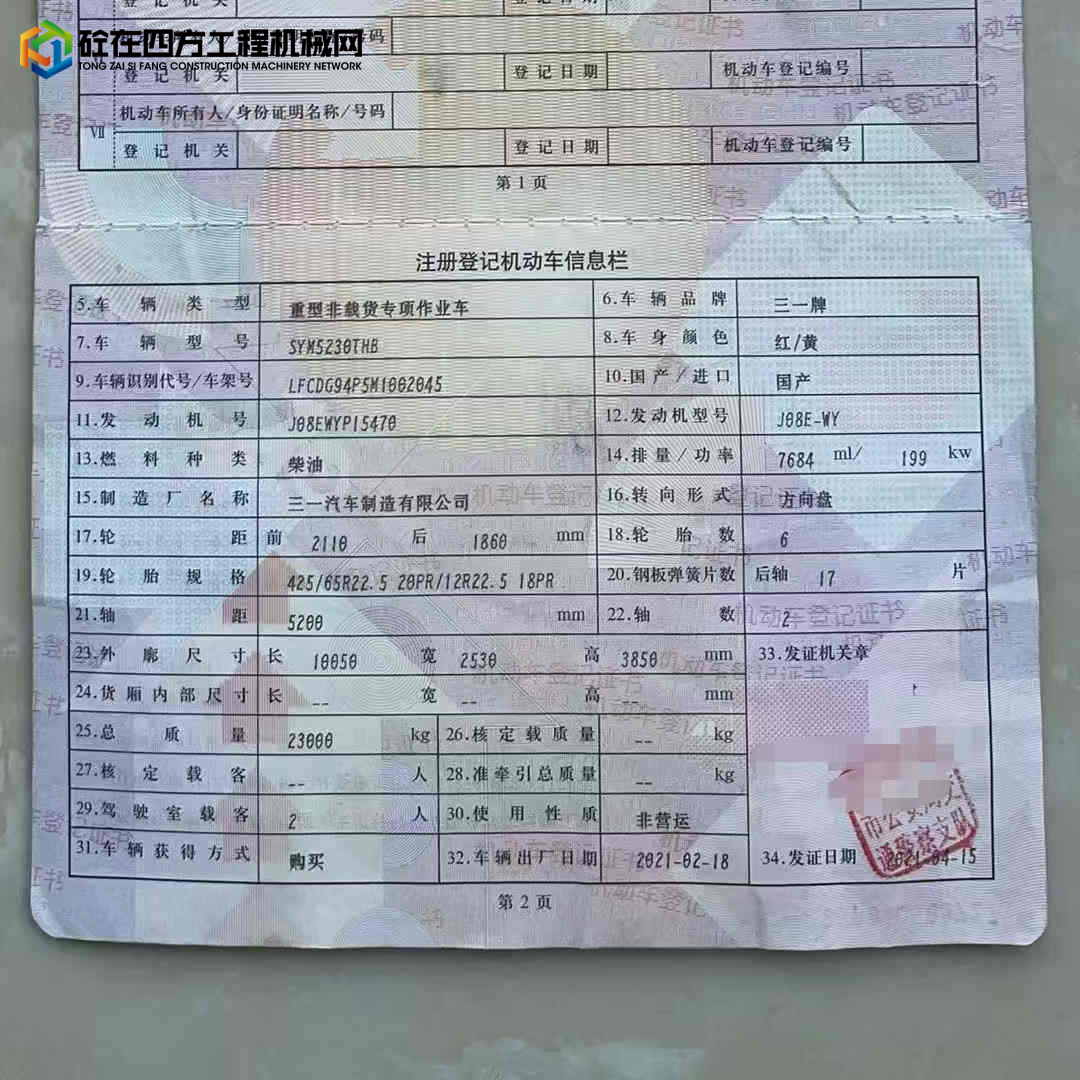 登记机关 登记日期 机动车登记编号
砼在四方工程机械网 号码
TONG ZAI SI FANG CONSTRUCTION MACHINERY NETWORK
登记机关 登记日期 机动车登记编号
机动车所有人/身份证明名称/号码
VII
登记机关 登记日期 机动车登记编号
第1页
注册登记机动车信息栏
5.车辆类型 重型非载货专项作业车 6.车辆品牌 三一牌
7.车辆型号 SYM5230THB 8.车身颜色 红/黄
9.车辆识别代号/车架号 LFCDG94P5M1002045 10.国产/进口 国产
11.发动机号 J08EWYP15470 12.发动机型号 J08E-WY
13.燃料种类 柴油 14.排量/功率 7684 ml/ 199 kw
15.制造厂名称 三一汽车制造有限公司 16.转向形式 方向盘
17.轮距 前 2110 后 1860 mm 18.轮胎数 6
19.轮胎规格 425/65R22.5 20PR/12R22.5 18PR 20.钢板弹簧片数 后轴 17 片
21.轴距 5200 mm 22.轴数 2
23.外廓尺寸 长 10050 宽 2530 高 3850 mm 33.发证机关章
24.货厢内部尺寸 长 -- 宽 -- 高 -- mm
25.总质量 23000 kg 26.核定载质量 -- kg
27.核定载客 -- 人 28.准牵引总质量 -- kg
29.驾驶室载客 2 人 30.使用性质 非营运
市公安局交
通警察支队
31.车辆获得方式 购买 32.车辆出厂日期 2021-02-18 34.发证日期 2021-04-15
第2页